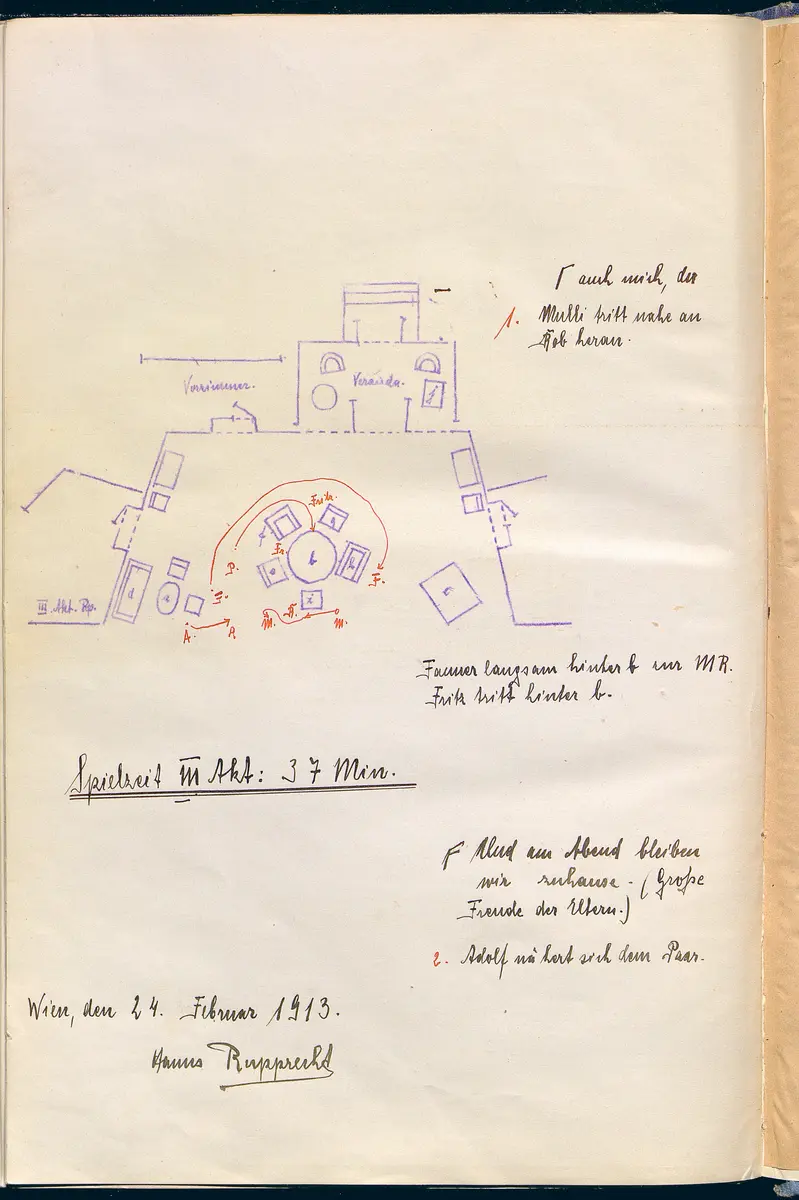 auch mich, du
1. Mukki tritt nahe an
Rob heran.
Vorzimmer.
Veranda.
Fritz.
Fr.
P.
F.
F.
III. Akt. Rp.
d
a
e
b
h
i
A.
A.
M.
R.
M.
Fanner langsam hinter b zur MR.
Fritz tritt hinter b.
Spielzeit III Akt: 37 Min.
Und am Abend bleiben
wir zuhause. (Große
Freude der Eltern.)
2. Adolf nähert sich dem Paar.
Wien, den 24. Februar 1913.
Hanns Rupprecht